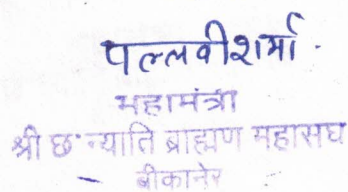 पल्लवी शर्मा
महामंत्री
श्री छः न्याति ब्राह्मण महासंघ
बीकानेर